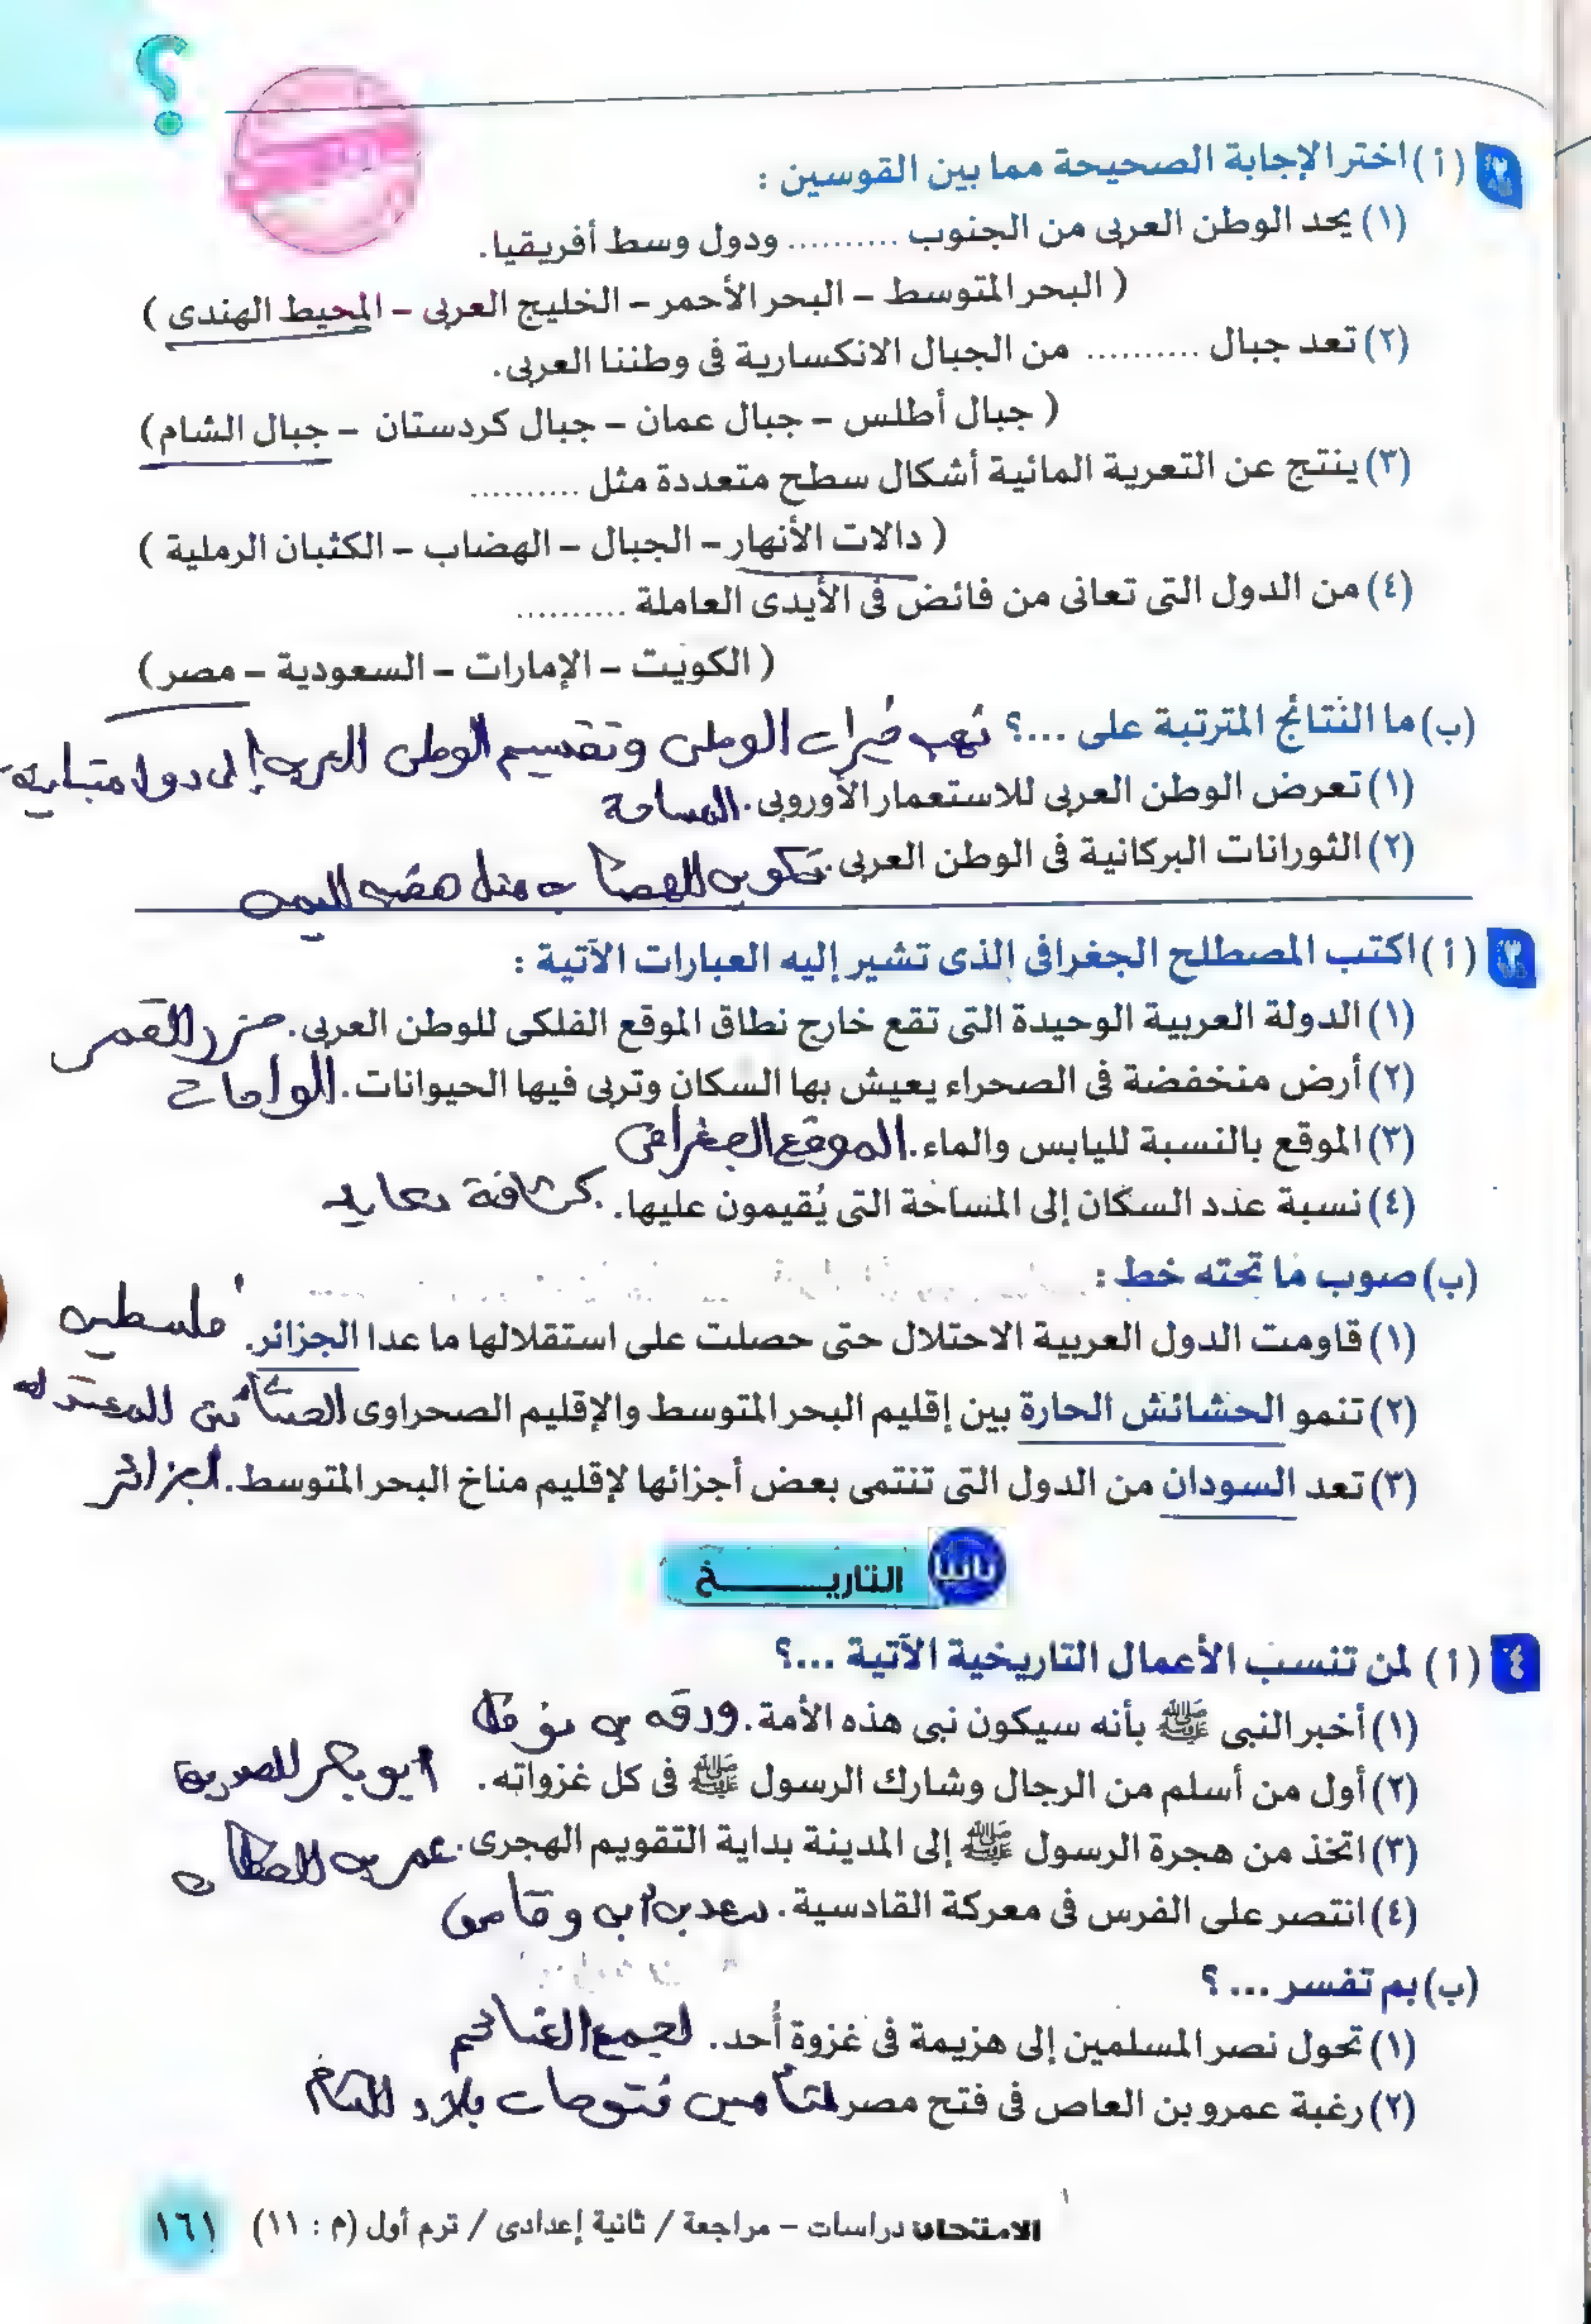 ؟
٢ (أ) اختر الإجابة الصحيحة مما بين القوسين :
(١) يحد الوطن العربى من الجنوب .......... ودول وسط أفريقيا.
( البحر المتوسط – البحر الأحمر – الخليج العربى – المحيط الهندى )
(٢) تعد جبال .......... من الجبال الانكسارية فى وطننا العربى.
( جبال أطلس – جبال عمان – جبال كردستان – جبال الشام)
(٣) ينتج عن التعرية المائية أشكال سطح متعددة مثل ..........
( دالات الأنهار – الجبال – الهضاب – الكثبان الرملية )
(٤) من الدول التى تعانى من فائض فى الأيدى العاملة ..........
( الكويت – الإمارات – السعودية – مصر)
(ب) ما النتائج المترتبة على ...؟ نهب خيرات الوطن وتقسيم الوطن العربى إلى دول متباينة
(١) تعرض الوطن العربى للاستعمار الأوروبى. المساحة
(٢) الثورانات البركانية فى الوطن العربى. تكوين الهضاب مثل هضبة اليمن
٣ (أ) اكتب المصطلح الجغرافى الذى تشير إليه العبارات الآتية :
(١) الدولة العربية الوحيدة التى تقع خارج نطاق الموقع الفلكى للوطن العربى. جزر القمر
(٢) أرض منخفضة فى الصحراء يعيش بها السكان وتربى فيها الحيوانات. الواحات
(٣) الموقع بالنسبة لليابس والماء. الموقع الجغرافى
(٤) نسبة عدد السكان إلى المساحة التى يُقيمون عليها. كثافة
(ب) صوب ما تحته خط :
(١) قاومت الدول العربية الاحتلال حتى حصلت على استقلالها ما عدا الجزائر. فلسطين
(٢) تنمو الحشائش الحارة بين إقليم البحر المتوسط والإقليم الصحراوى الحشائش المعتدلة
(٣) تعد السودان من الدول التى تنتمى بعض أجزائها لإقليم مناخ البحر المتوسط. الجزائر
ثانيا التاريخ
٤ (أ) لمن تنسب الأعمال التاريخية الآتية ...؟
(١) أخبر النبى ﷺ بأنه سيكون نبى هذه الأمة. ورقه بن نوفل
(٢) أول من أسلم من الرجال وشارك الرسول ﷺ فى كل غزواته. ابو بكر الصديق
(٣) اتخذ من هجرة الرسول ﷺ إلى المدينة بداية التقويم الهجرى. عمر بن الخطاب
(٤) انتصر على الفرس فى معركة القادسية. سعد بن أبى وقاص
(ب) بم تفسر ... ؟
(١) تحول نصر المسلمين إلى هزيمة فى غزوة أُحد. لجمع الغنائم
(٢) رغبة عمرو بن العاص فى فتح مصر لتأمين فتوحات بلاد الشام
الامتحان دراسات – مراجعة / ثانية إعدادى / ترم أول (م : ١١) ١٦١